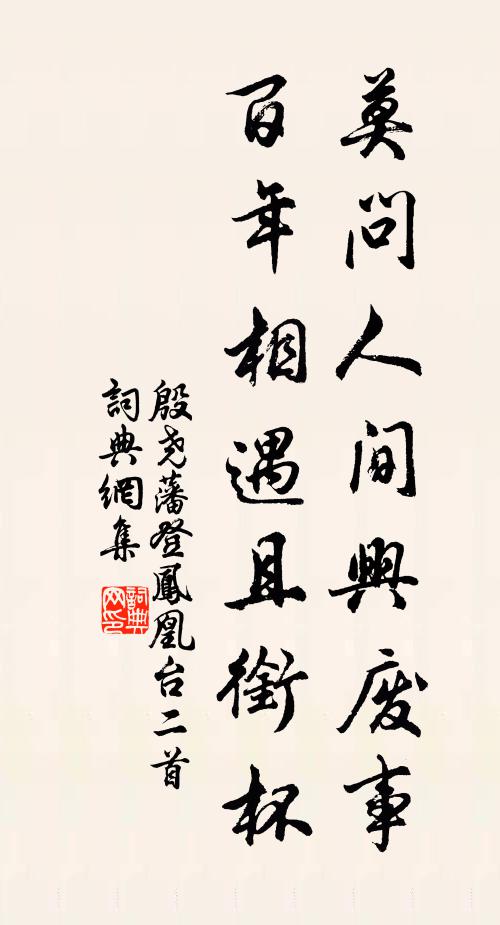 莫问人间興废事
百年相遇且銜杯
殷尧藩登鳳凰台二首
詞典網集
詞典
网印